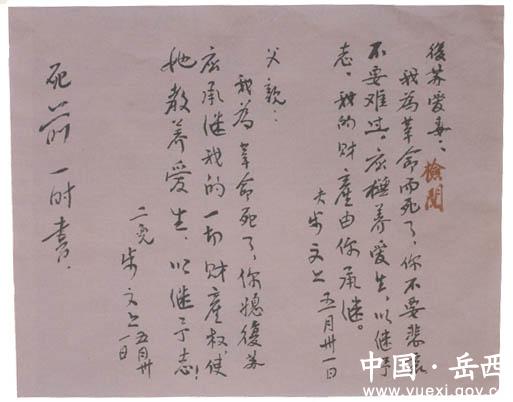 後苏爱妻：
檢閱
我為革命而死了，你不要悲哀
不要难过，应撫养爱生，以继予
志，我的财產由你承继。
夫步文上 五月卅一日
父親：
我為革命死了，你媳復苏
应承继我的一切财產权，使
她教养爱生，以继予志！
步文上 五月卅一日
死前一时書．
中国·岳西
www.yuexi.gov.cn